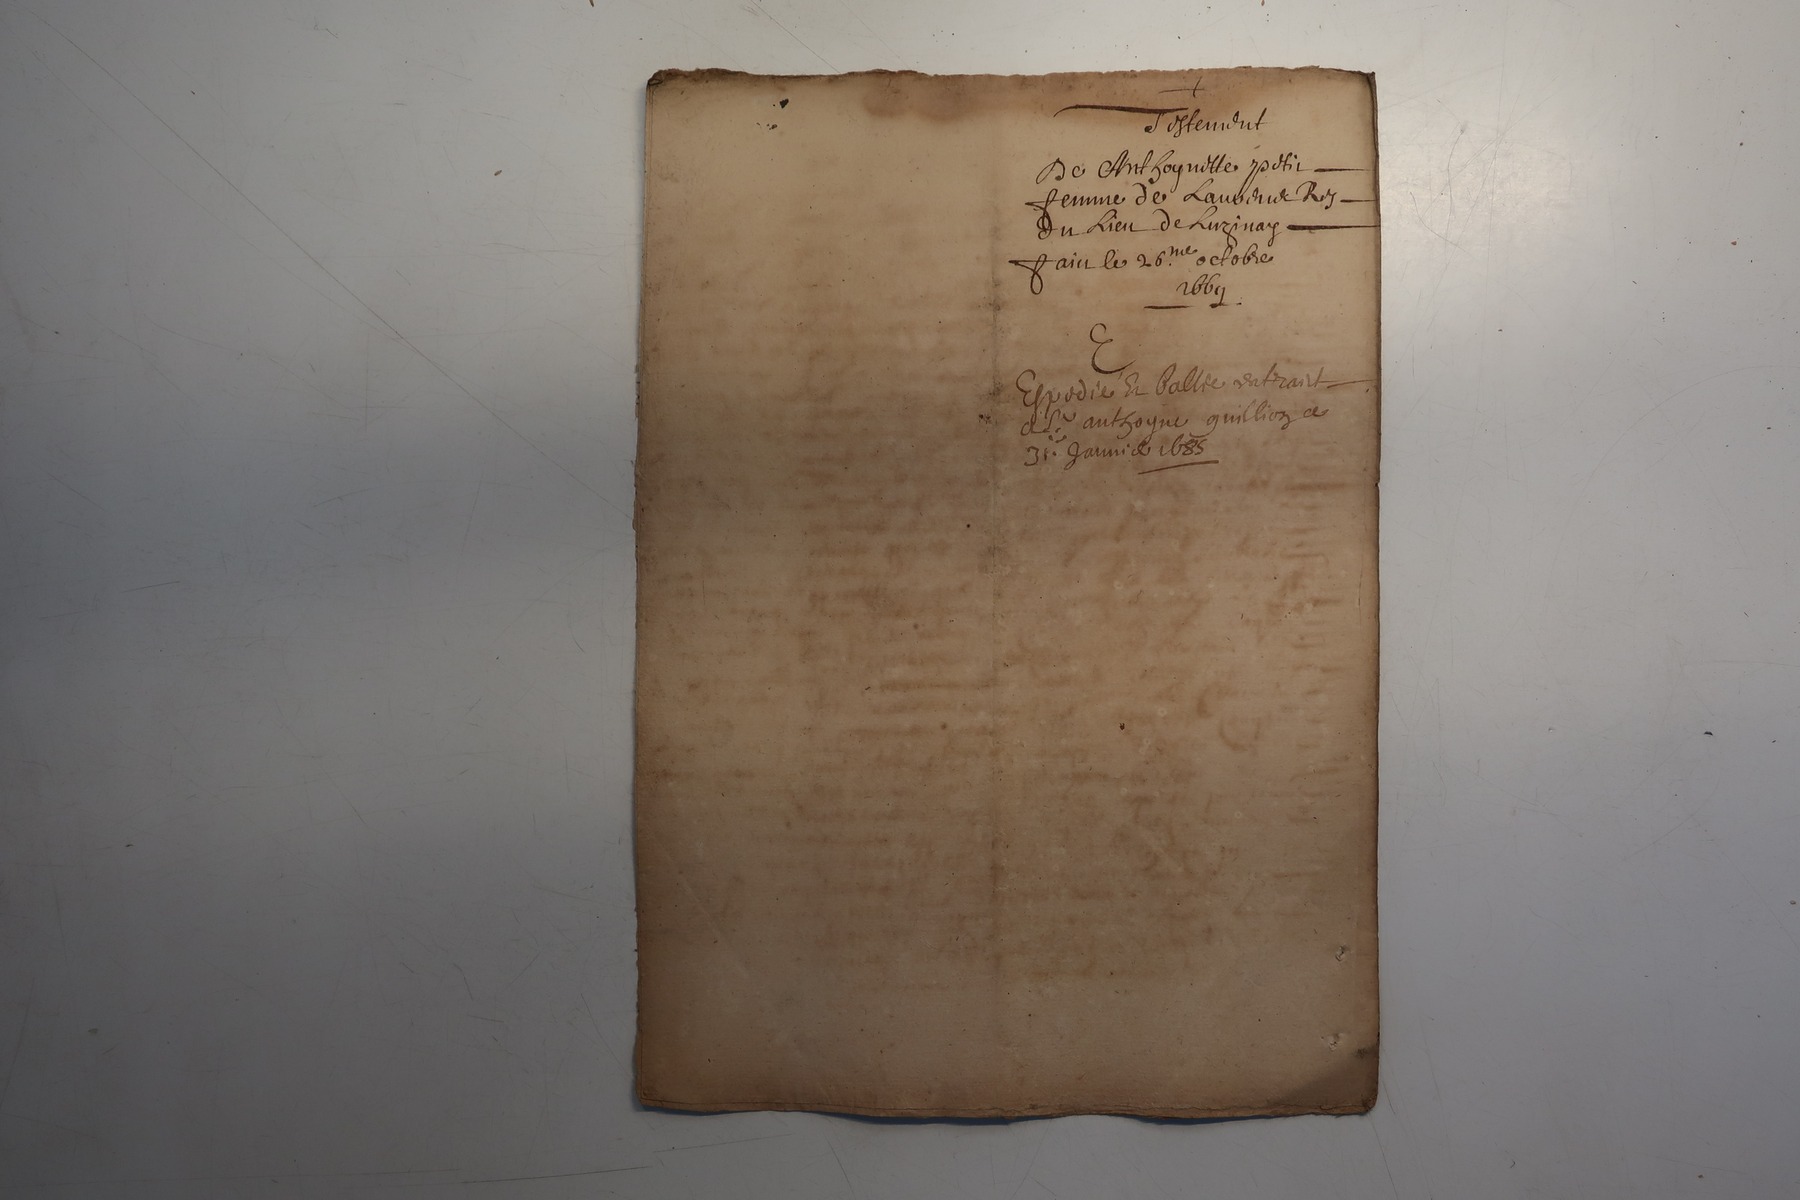 Testement
De Anthoynette petit
femme de Laurens Rey
Du Lieu de Luzinay
faict le 26.me octobre
1669
E
Expedié En
anthoyne guillion ce
31. Janvié 1685